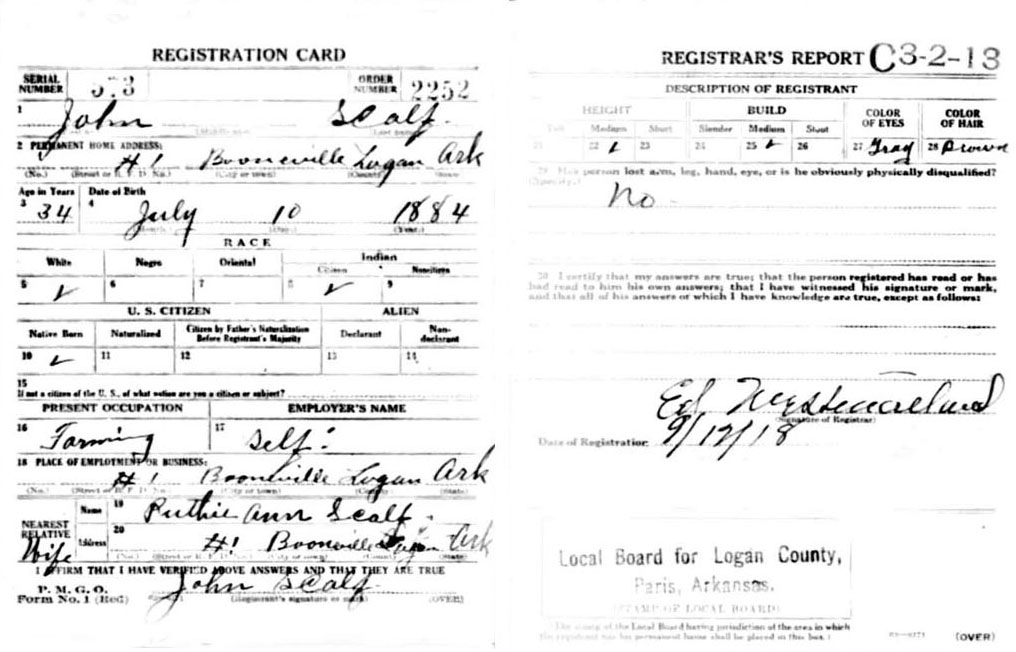 REGISTRATION CARD
SERIAL NUMBER 573 ORDER NUMBER 2252
1 John Scalf
2 PERMANENT HOME ADDRESS:
#1 Booneville Logan Ark
(No.) (Street or R. F. D. No.) (City or town) (County) (State)
Age in Years Date of Birth
3 34 4 July 10 1884
(Month) (Day) (Year)
RACE
White Negro Oriental Indian
Citizen Noncitizen
5 ✓ 6 7 8 ✓ 9
U. S. CITIZEN ALIEN
Native Born Naturalized Citizen by Father's Naturalization Before Registrant's Majority Declarant Non-declarant
10 ✓ 11 12 13 14
15
If not a citizen of the U. S., of what nation are you a citizen or subject?
PRESENT OCCUPATION EMPLOYER'S NAME
16 Farming 17 Self
18 PLACE OF EMPLOYMENT OR BUSINESS:
#1 Booneville Logan Ark
(No.) (Street or R. F. D. No.) (City or town) (County) (State)
NEAREST RELATIVE Name 19 Ruthie Ann Scalf
Wife Address 20 #1 Booneville Logan Ark
(No.) (Street or R. F. D. No.) (City or town) (County) (State)
I AFFIRM THAT I HAVE VERIFIED ABOVE ANSWERS AND THAT THEY ARE TRUE
P. M. G. O.
Form No. 1 (Red) John Scalf
(Registrant's signature or mark) (OVER)
REGISTRAR'S REPORT C3-2-13
DESCRIPTION OF REGISTRANT
HEIGHT BUILD COLOR OF EYES COLOR OF HAIR
Tall Medium Short Slender Medium Stout
21 22 ✓ 23 24 25 ✓ 26 27 Gray 28 Brown
29 Has person lost arm, leg, hand, eye, or is he obviously physically disqualified?
(Specify.) No
30 I certify that my answers are true; that the person registered has read or has
had read to him his own answers; that I have witnessed his signature or mark,
and that all of his answers of which I have knowledge are true, except as follows:
Ed Westmoreland
(Signature of Registrar)
Date of Registration 9/12/18
Local Board for Logan County,
Paris, Arkansas.
(STAMP OF LOCAL BOARD)
(The stamp of the Local Board having jurisdiction of the area in which
the registrant has his permanent home shall be placed in this box.)
(OVER)